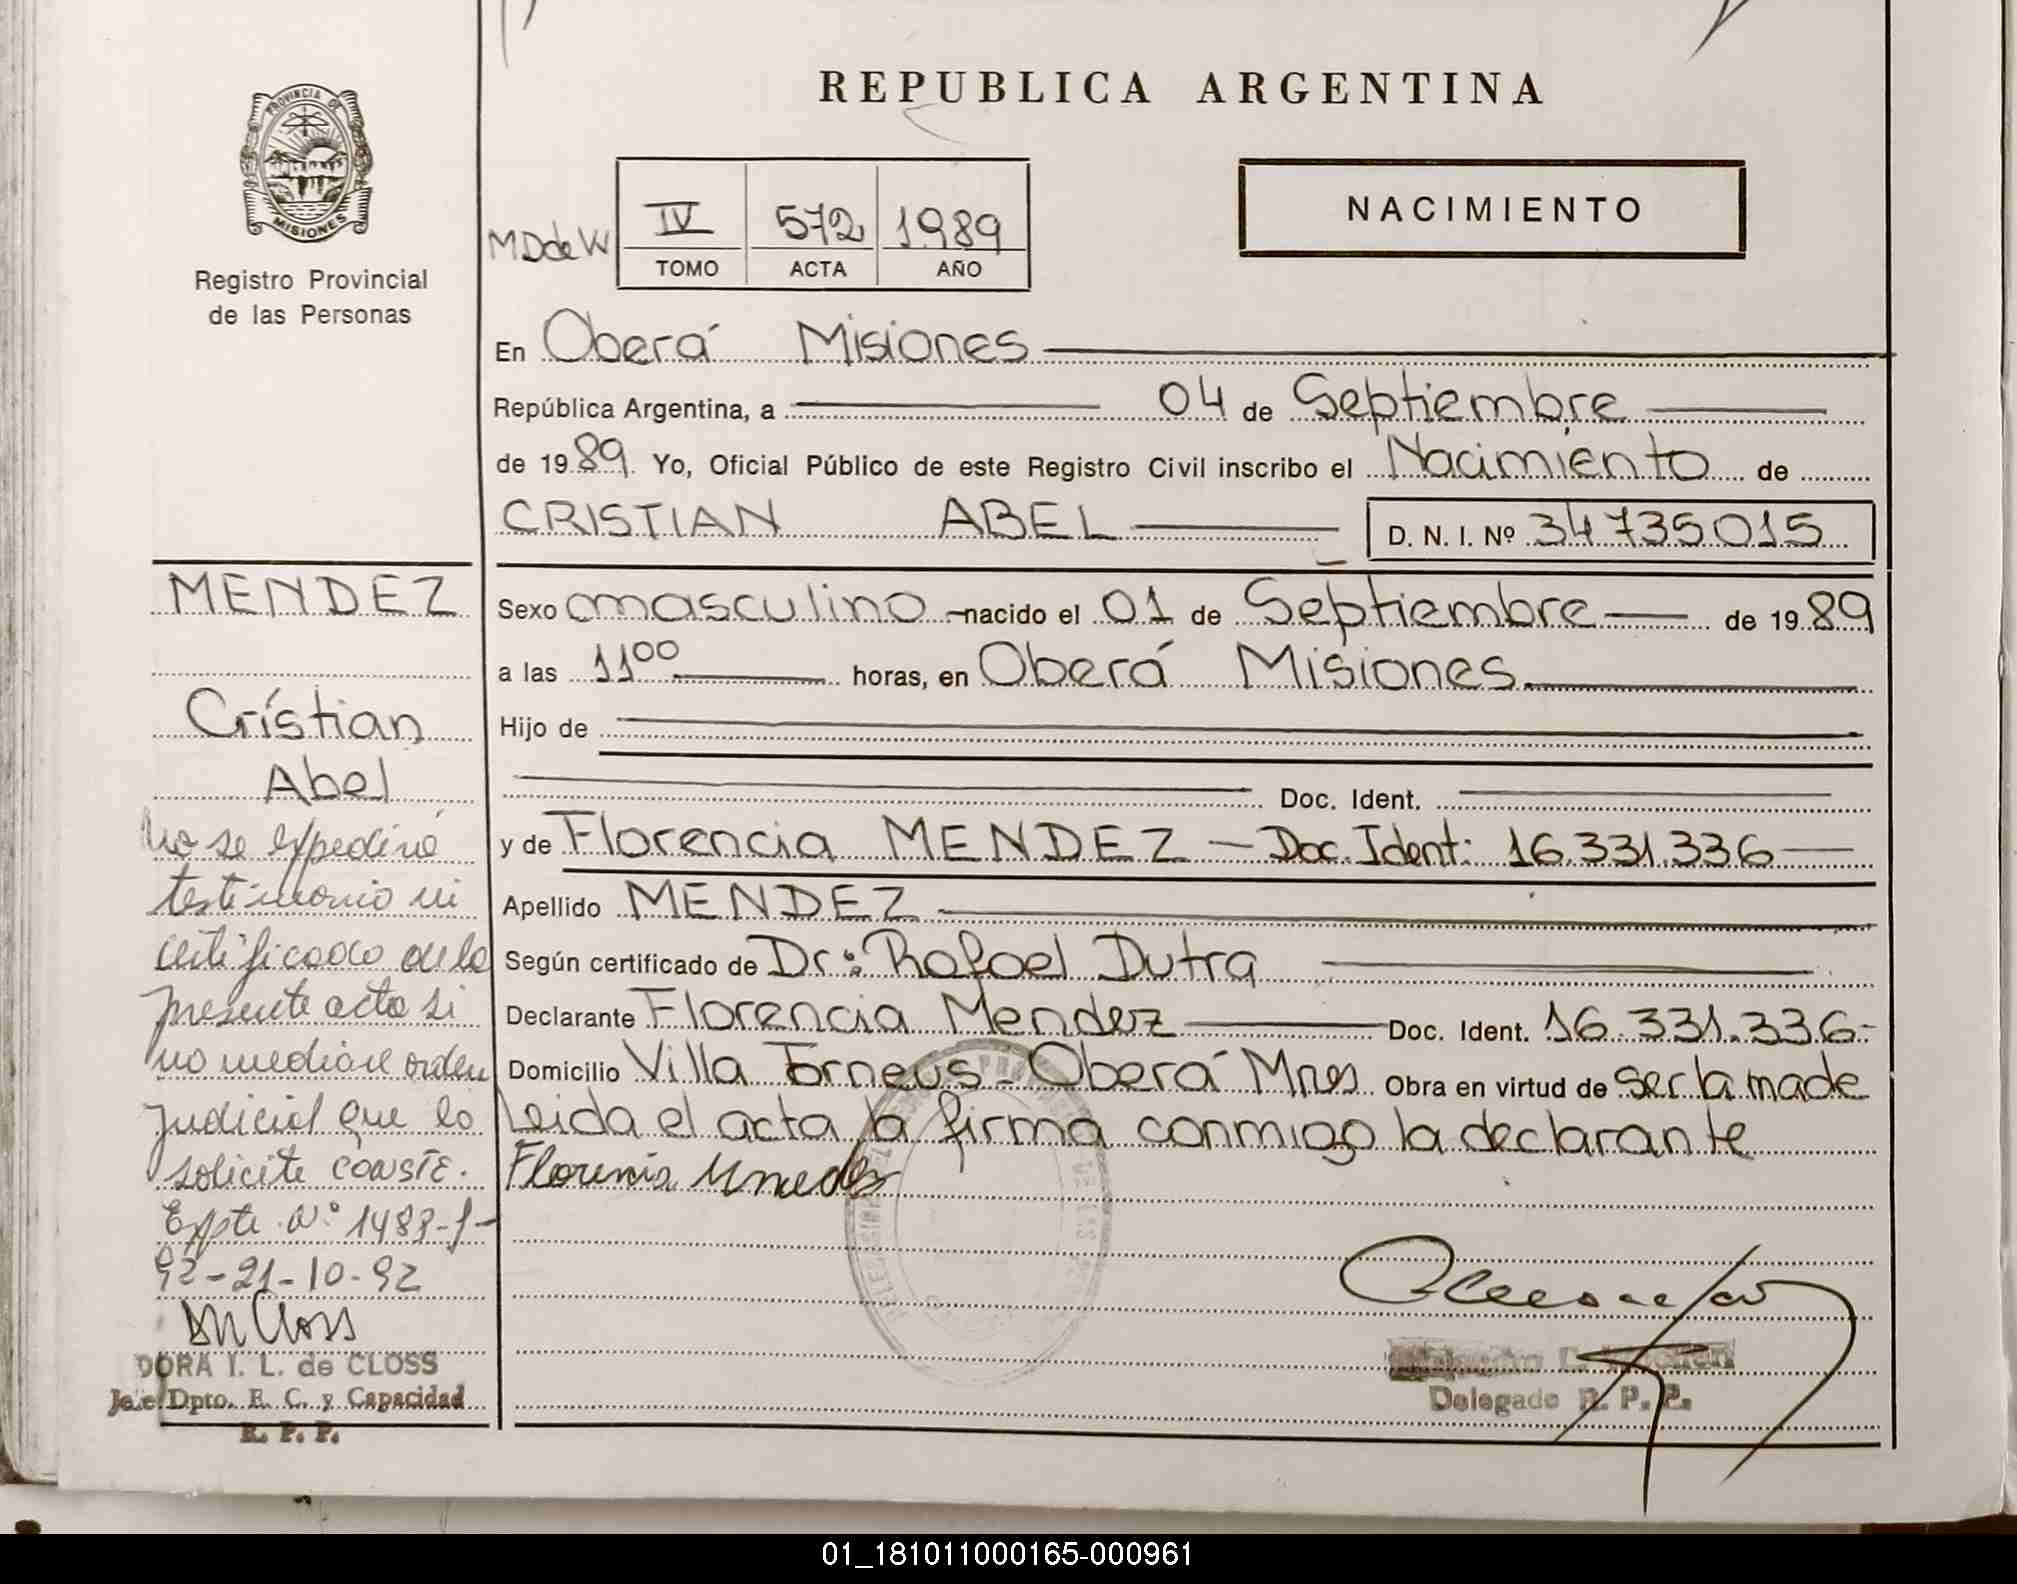 REPUBLICA ARGENTINA
PROVINCIA DE
MISIONES
Registro Provincial
de las Personas
MDdeW
IV 572 1989
TOMO ACTA AÑO
NACIMIENTO
En Oberá Misiones
República Argentina, a 04 de Septiembre
de 1989 Yo, Oficial Público de este Registro Civil inscribo el Nacimiento de
CRISTIAN ABEL D. N. I. Nº 34735015
Sexo masculino nacido el 01 de Septiembre de 1989
a las 11 00 horas, en Oberá Misiones
Hijo de
Doc. Ident.
y de Florencia MENDEZ - Doc. Ident: 16.331.336
Apellido MENDEZ
Según certificado de Dr: Rafael Dutra
Declarante Florencia Mendez Doc. Ident. 16.331.336-
Domicilio Villa Torneus - Oberá Mnes Obra en virtud de ser la made
Leida el acta la firma conmigo la declarante
Delegado R. P. P.
MENDEZ
Cristian
Abel
No se expediré
testimonio ni
certificado de la
presente acta si
no mediare orden
judicial que lo
solicite CONSTE.
Expte Nº 1488-J-
92-21-10-92
DORA I. L. de CLOSS
Jefe Dpto. E. C. y Capacidad
R. P. P.
01_181011000165-000961